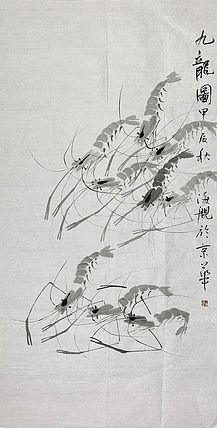 九龍圖甲辰秋海觀於京華